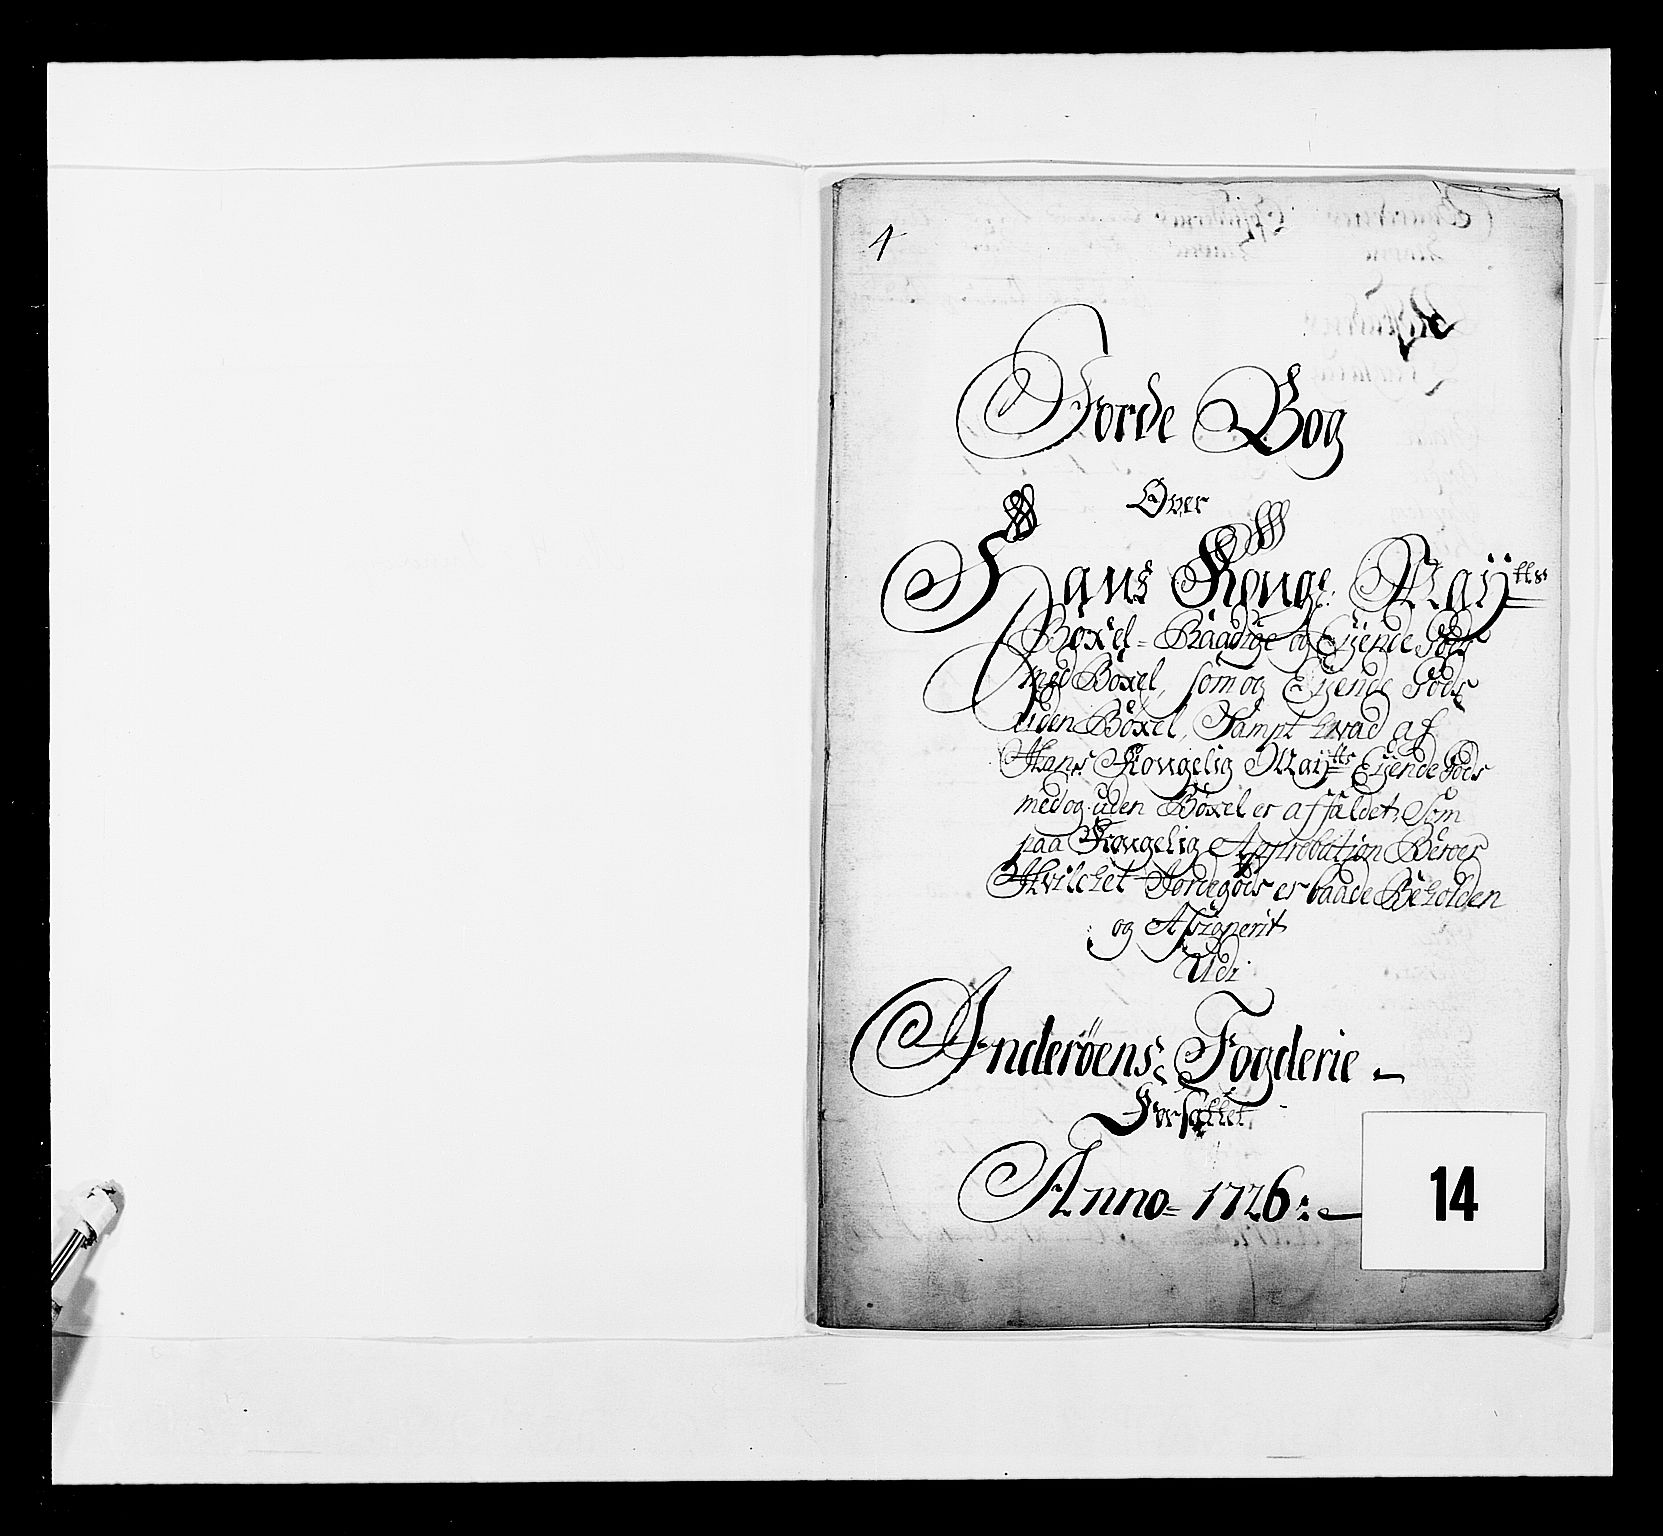 4
Jorde Bog
Over
Hans Konge: Mayᵗᵗˢ
Böxel-Raadige og Eyende Gods
med Böxel, som og Eyende Gods
uden Böxel, Sampt hvad af
Hans Kongelig Mayᵗᵗˢ Eyende Gods
med og uden Böxel er affældet, Som
paa Kongelig Approbation Beroer
Hvilchet Jordegods er baade Beholden
og Assignerit
Udi
Inderøens Fogderie
Forfattet
Anno 1726
14